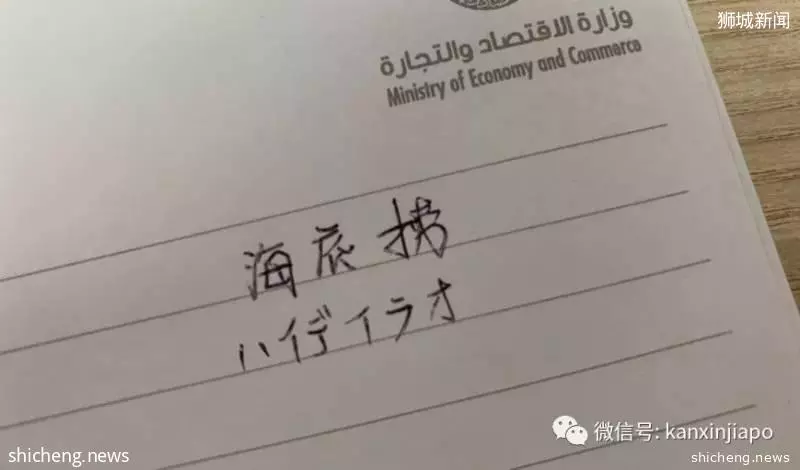 狮城新闻
وزارة الاقتصاد والتجارة
Ministry of Economy and Commerce
海底捞
ハイディラオ
微信号: kanxinjiapo
shicheng.news
shicheng.news